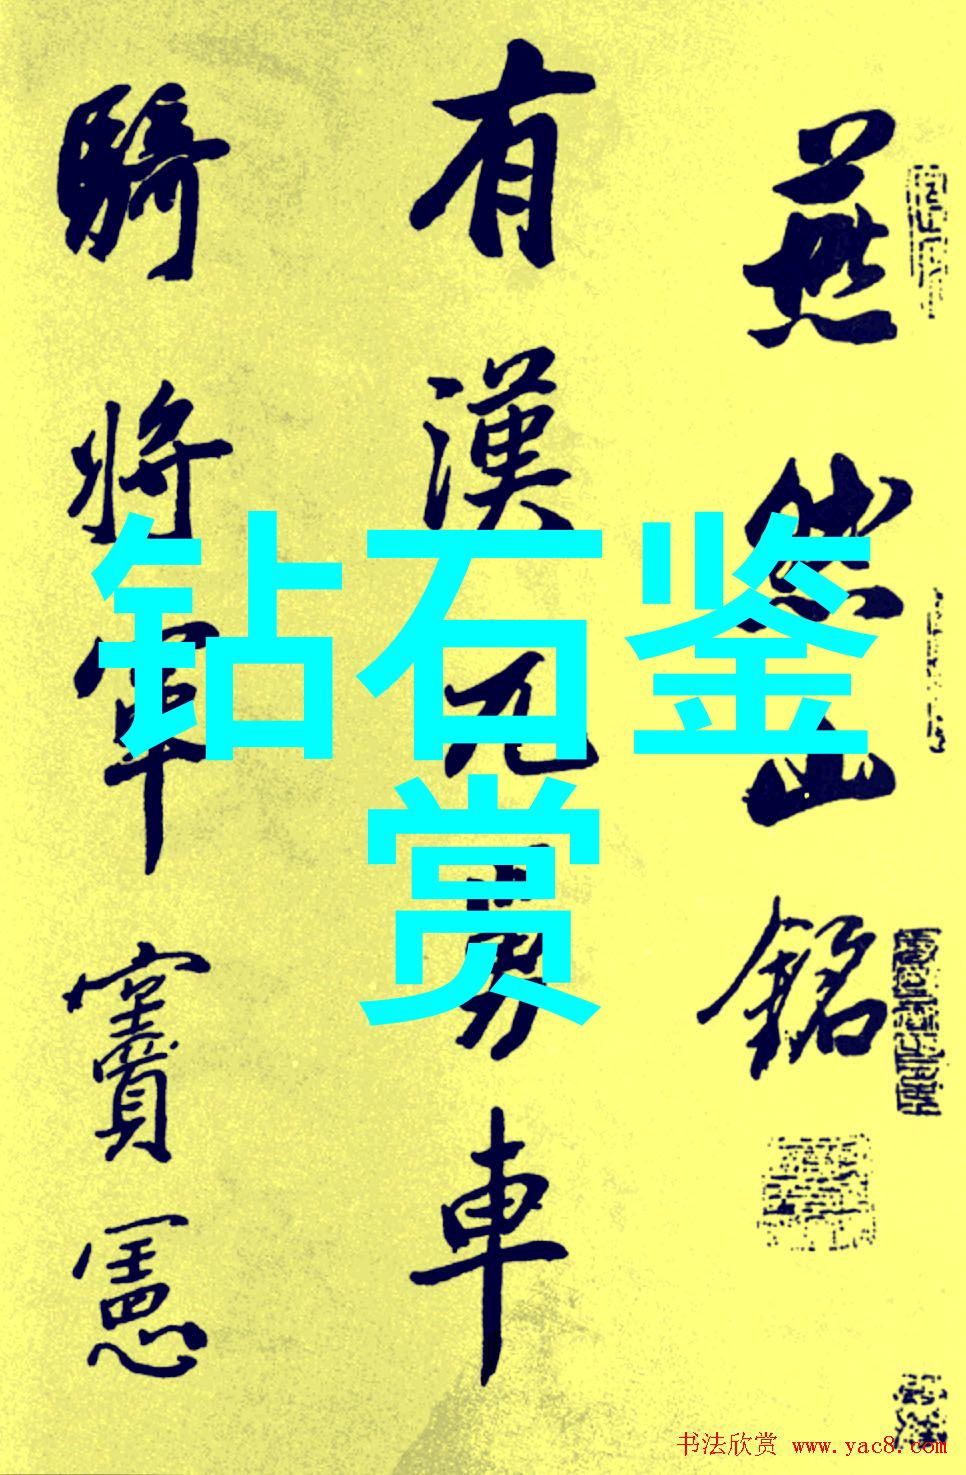 燕然山銘
有漢元舅車
騎將軍竇憲
钻石鉴
赏
书法欣赏 www.yac8.com